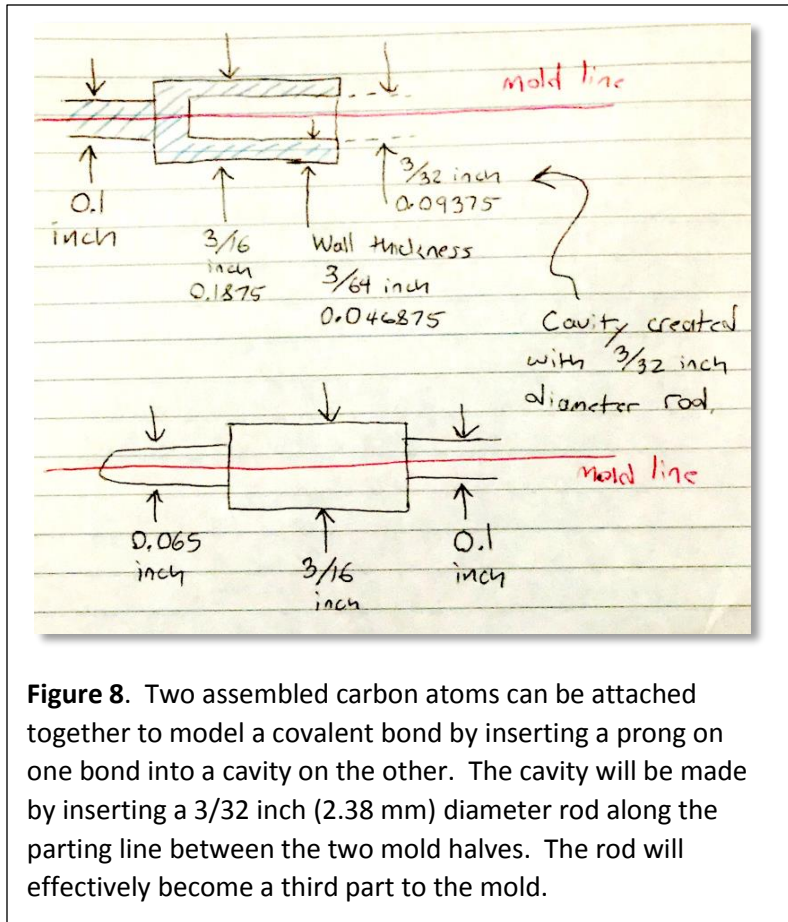 mold line
0.1
inch
3/16
inch
0.1875
Wall thickness
3/64 inch
0.046875
3/32 inch
0.09375
Cavity created
with 3/32 inch
diameter rod.
mold line
0.065
inch
3/16
inch
0.1
inch
Figure 8. Two assembled carbon atoms can be attached
together to model a covalent bond by inserting a prong on
one bond into a cavity on the other. The cavity will be made
by inserting a 3/32 inch (2.38 mm) diameter rod along the
parting line between the two mold halves. The rod will
effectively become a third part to the mold.